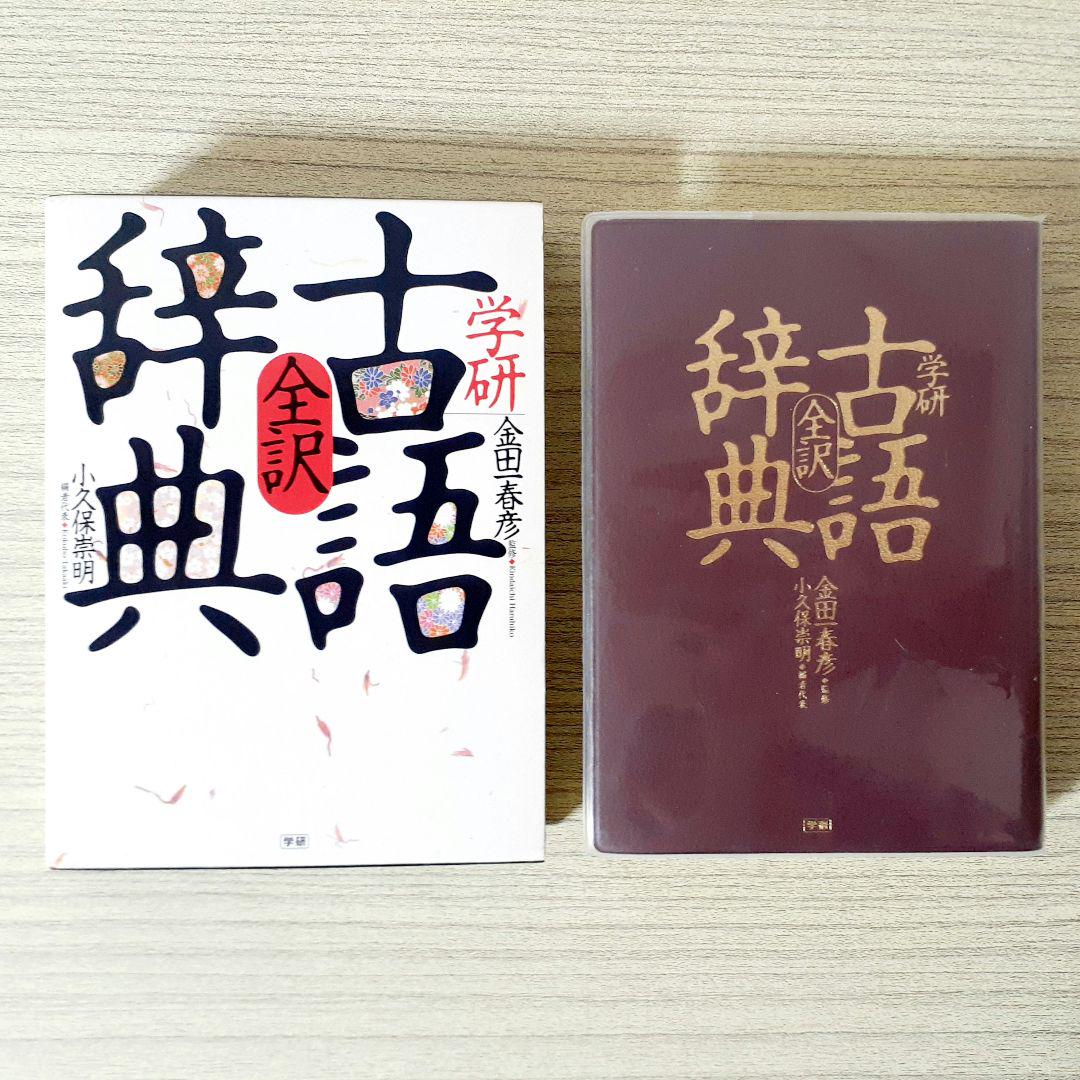 学研
全訳
古語
辞典
金田一春彦 監修◆Kindaichi Haruhiko
小久保崇明
編者代表◆Kokubo Takaaki
学研
学研
全訳
古語
辞典
金田一春彦◆監修
小久保崇明◆編者代表
学研